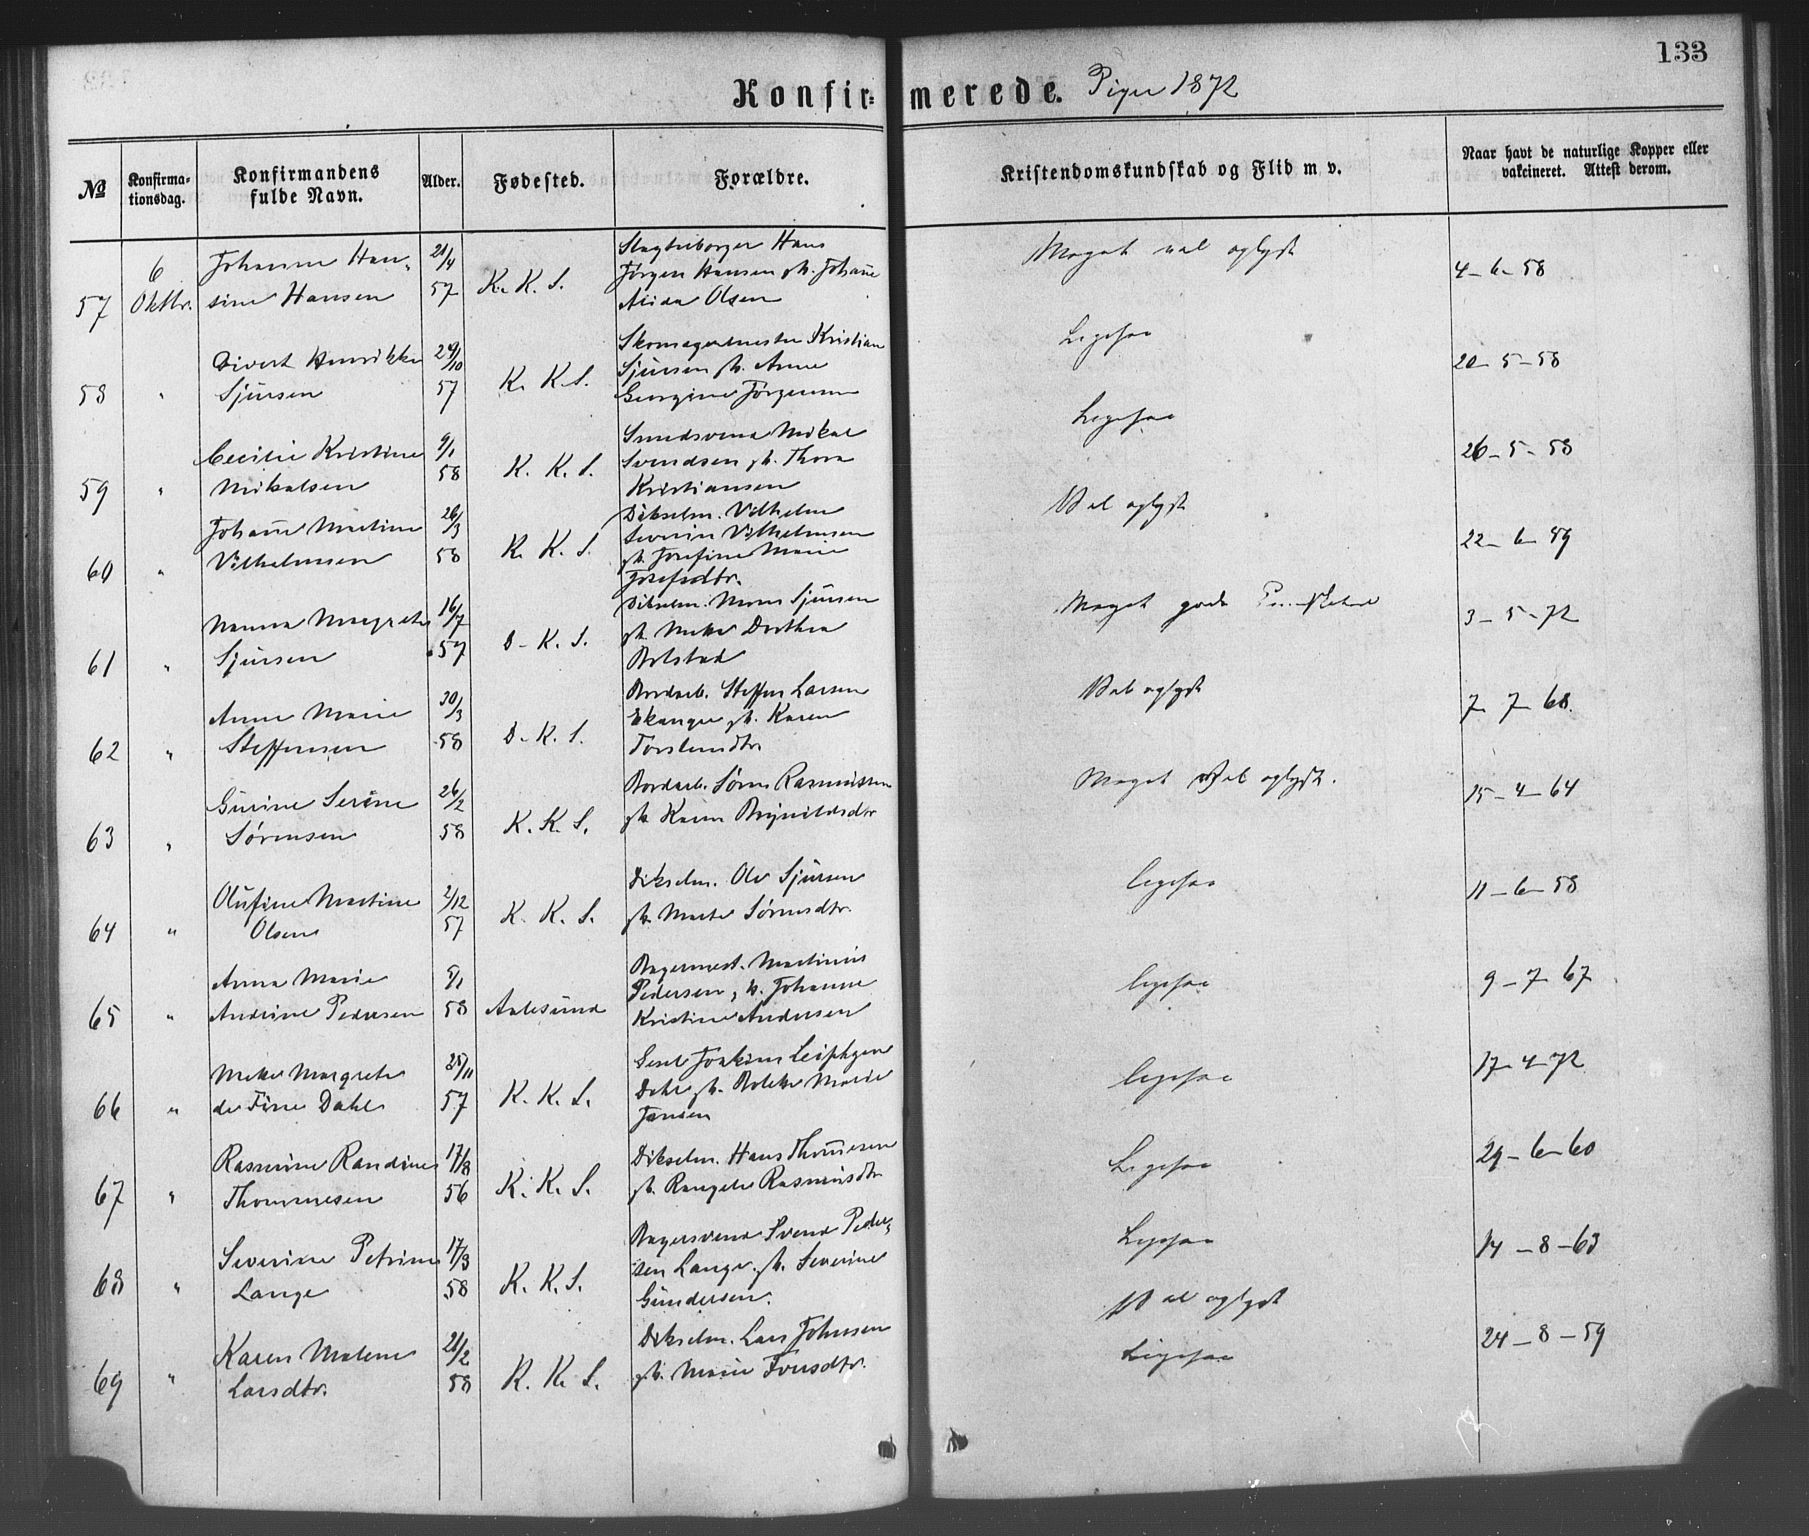 133
Konfirmerede. Piger 1872
№ Konfirmationsdag. Konfirmandens fulde Navn. Alder. Fødested. Forældre. Kristendomskundskab og Flid m v. Naar havt de naturlige Kopper eller vakcineret. Attest derom.
57 6 Oktbr. Johanne Han-
sine Hansen 21/4 57 K. K. S.
Hans
Jørgen Hansen Johanne
Olsen
Meget vel oplyst 4-6-58
58 " Henrikke
Sjursen /10 57 K. K. S.
Skomagermester Kristian
Sjursen Anne
Georgine Jørgensen
Ligesaa 20-5-58
59 " Cecilie Kristine
Mikalsen 9/1 58 K. K. S.
Smedsvend Mikal
Svendsen Thora
Kristiansen
Ligesaa 26-5-58
60 " Johanne Martine
Vilhelmsen 26/3 58 K. K. S.
Vilhelm
Severin Vilhelmsen
Josefine Marie
Josefsdtr.
Vel oplyst 22-6-59
61 " Nanna Margrete
Sjursen 16/7 57 D. K. S.
Mons Sjursen
Mette Dorthea
Bolstad
Meget gode 3-5-72
62 " Anne Marie
Steffensen 30/3 58 D. K. S.
Bordarb. Steffen Larsen
Karen
Vel oplyst 7-7-68.
63 " Gurine Serine
Sørensen 26/2 58 K. K. S.
Bordarb. Søren Rasmussen
Karen Brynildsdtr
Meget Vel oplyst. 15-4-64
64 " Olufine Martine
Olsen 2/12 57 K. K. S.
Ole Sjursen
Marte Sørensdtr.
ligesaa 11-6-58
65 " Anna Marie
Andrine Pedersen 5/1 58 Aalesund
Bagermest. Martinus
Pedersen, Johanne
Kristine Andersen
ligesaa 9-7-67
66 " Mette Margrete
de Fine Dahl 25/11 57 K. K. S.
Joakim
Dahl Bolette Marie
Jansen
ligesaa 17-4-72
67 " Rasmine Randine
Thommesen 17/8 56 K. K. S.
Hans Thommesen
Rasmusdtr
Ligesaa 29-6-60
68 " Severine Petrine
Lange 17/3 58 K. K. S.
Bagersvend Svend Peder-
sen Lange. Severine
Gundersen.
Ligesaa 14-8-63
Vel oplyst
69 " Karen Malene
Larsdtr. 21/2 58 K. K. S.
Lars Johnsen
Marie Iversdtr.
Ligesaa 24-8-59